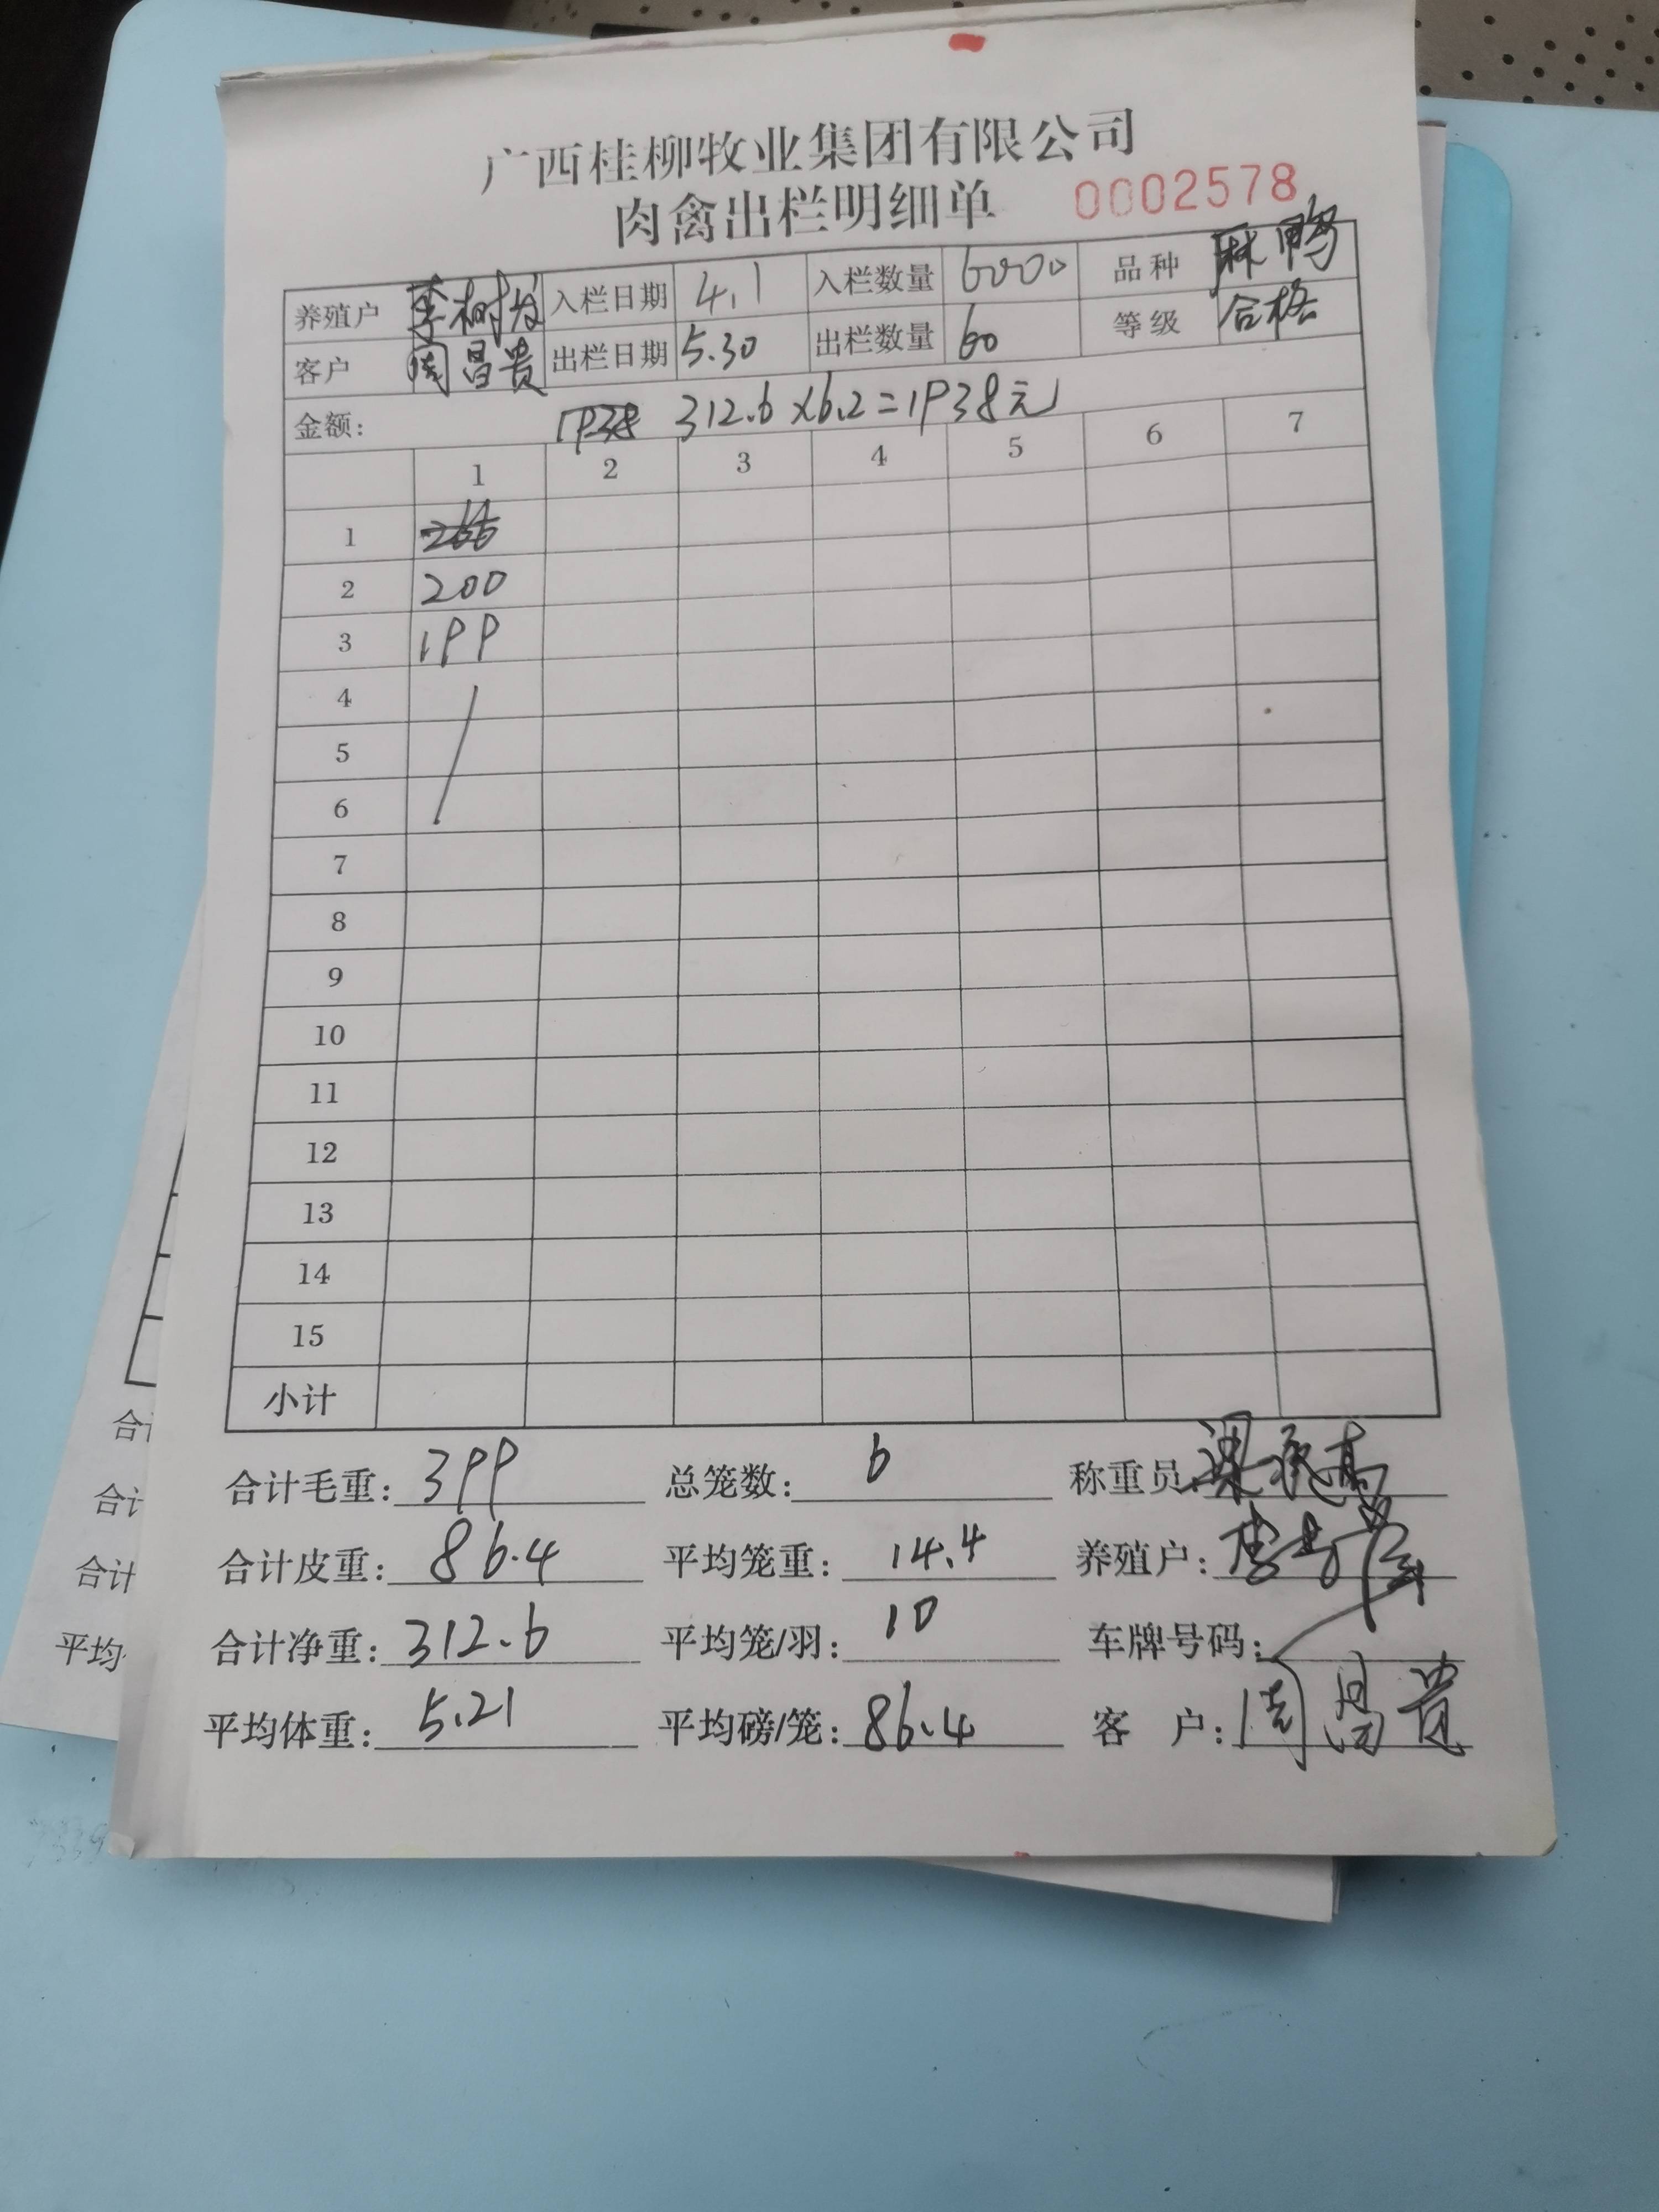 广西桂柳牧业集团有限公司
肉禽出栏明细单 0002578
养殖户 李树发 入栏日期 4.1 入栏数量 6000 品种 麻鸭
客户 周昌贵 出栏日期 5.30 出栏数量 60 等级 合格
金额: 312.6×6.2=1938元
1 2 3 4 5 6 7
1
2 200
3 199
4
5
6
7
8
9
10
11
12
13
14
15
小计
合计毛重: 399 总笼数: 6 称重员:
合计皮重: 86.4 平均笼重: 14.4 养殖户:
合计净重: 312.6 平均笼/羽: 10 车牌号码:
平均体重: 5.21 平均磅/笼: 86.4 客 户: 周昌贵
合计
合计
合计
平均